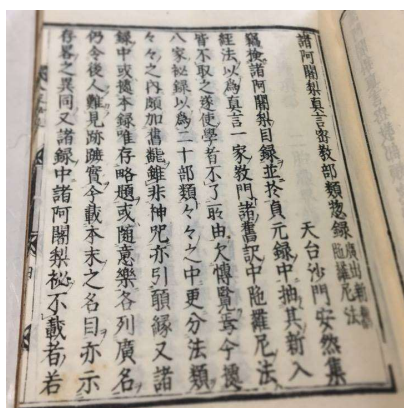 諸阿闍梨真言密教部類惣録
廣出新舊
陁羅尼法
天台沙門安然集
竊撿諸阿闍梨目録並於貞元録中抽其新入
經法以爲真言一家教門諸舊訳中陁羅尼法
皆不取之遂使學者不了取由欠博覽焉今據
八家秘録以爲二十部類々々之中更分法類
々々之内頗加舊雖非神咒亦引縁又諸
録中或據本録唯存略題或隨意樂各列廣名
仍令後人難見跡實今載本末之名目亦示
存畧之異同又諸録中諸阿闍梨秘不載者若